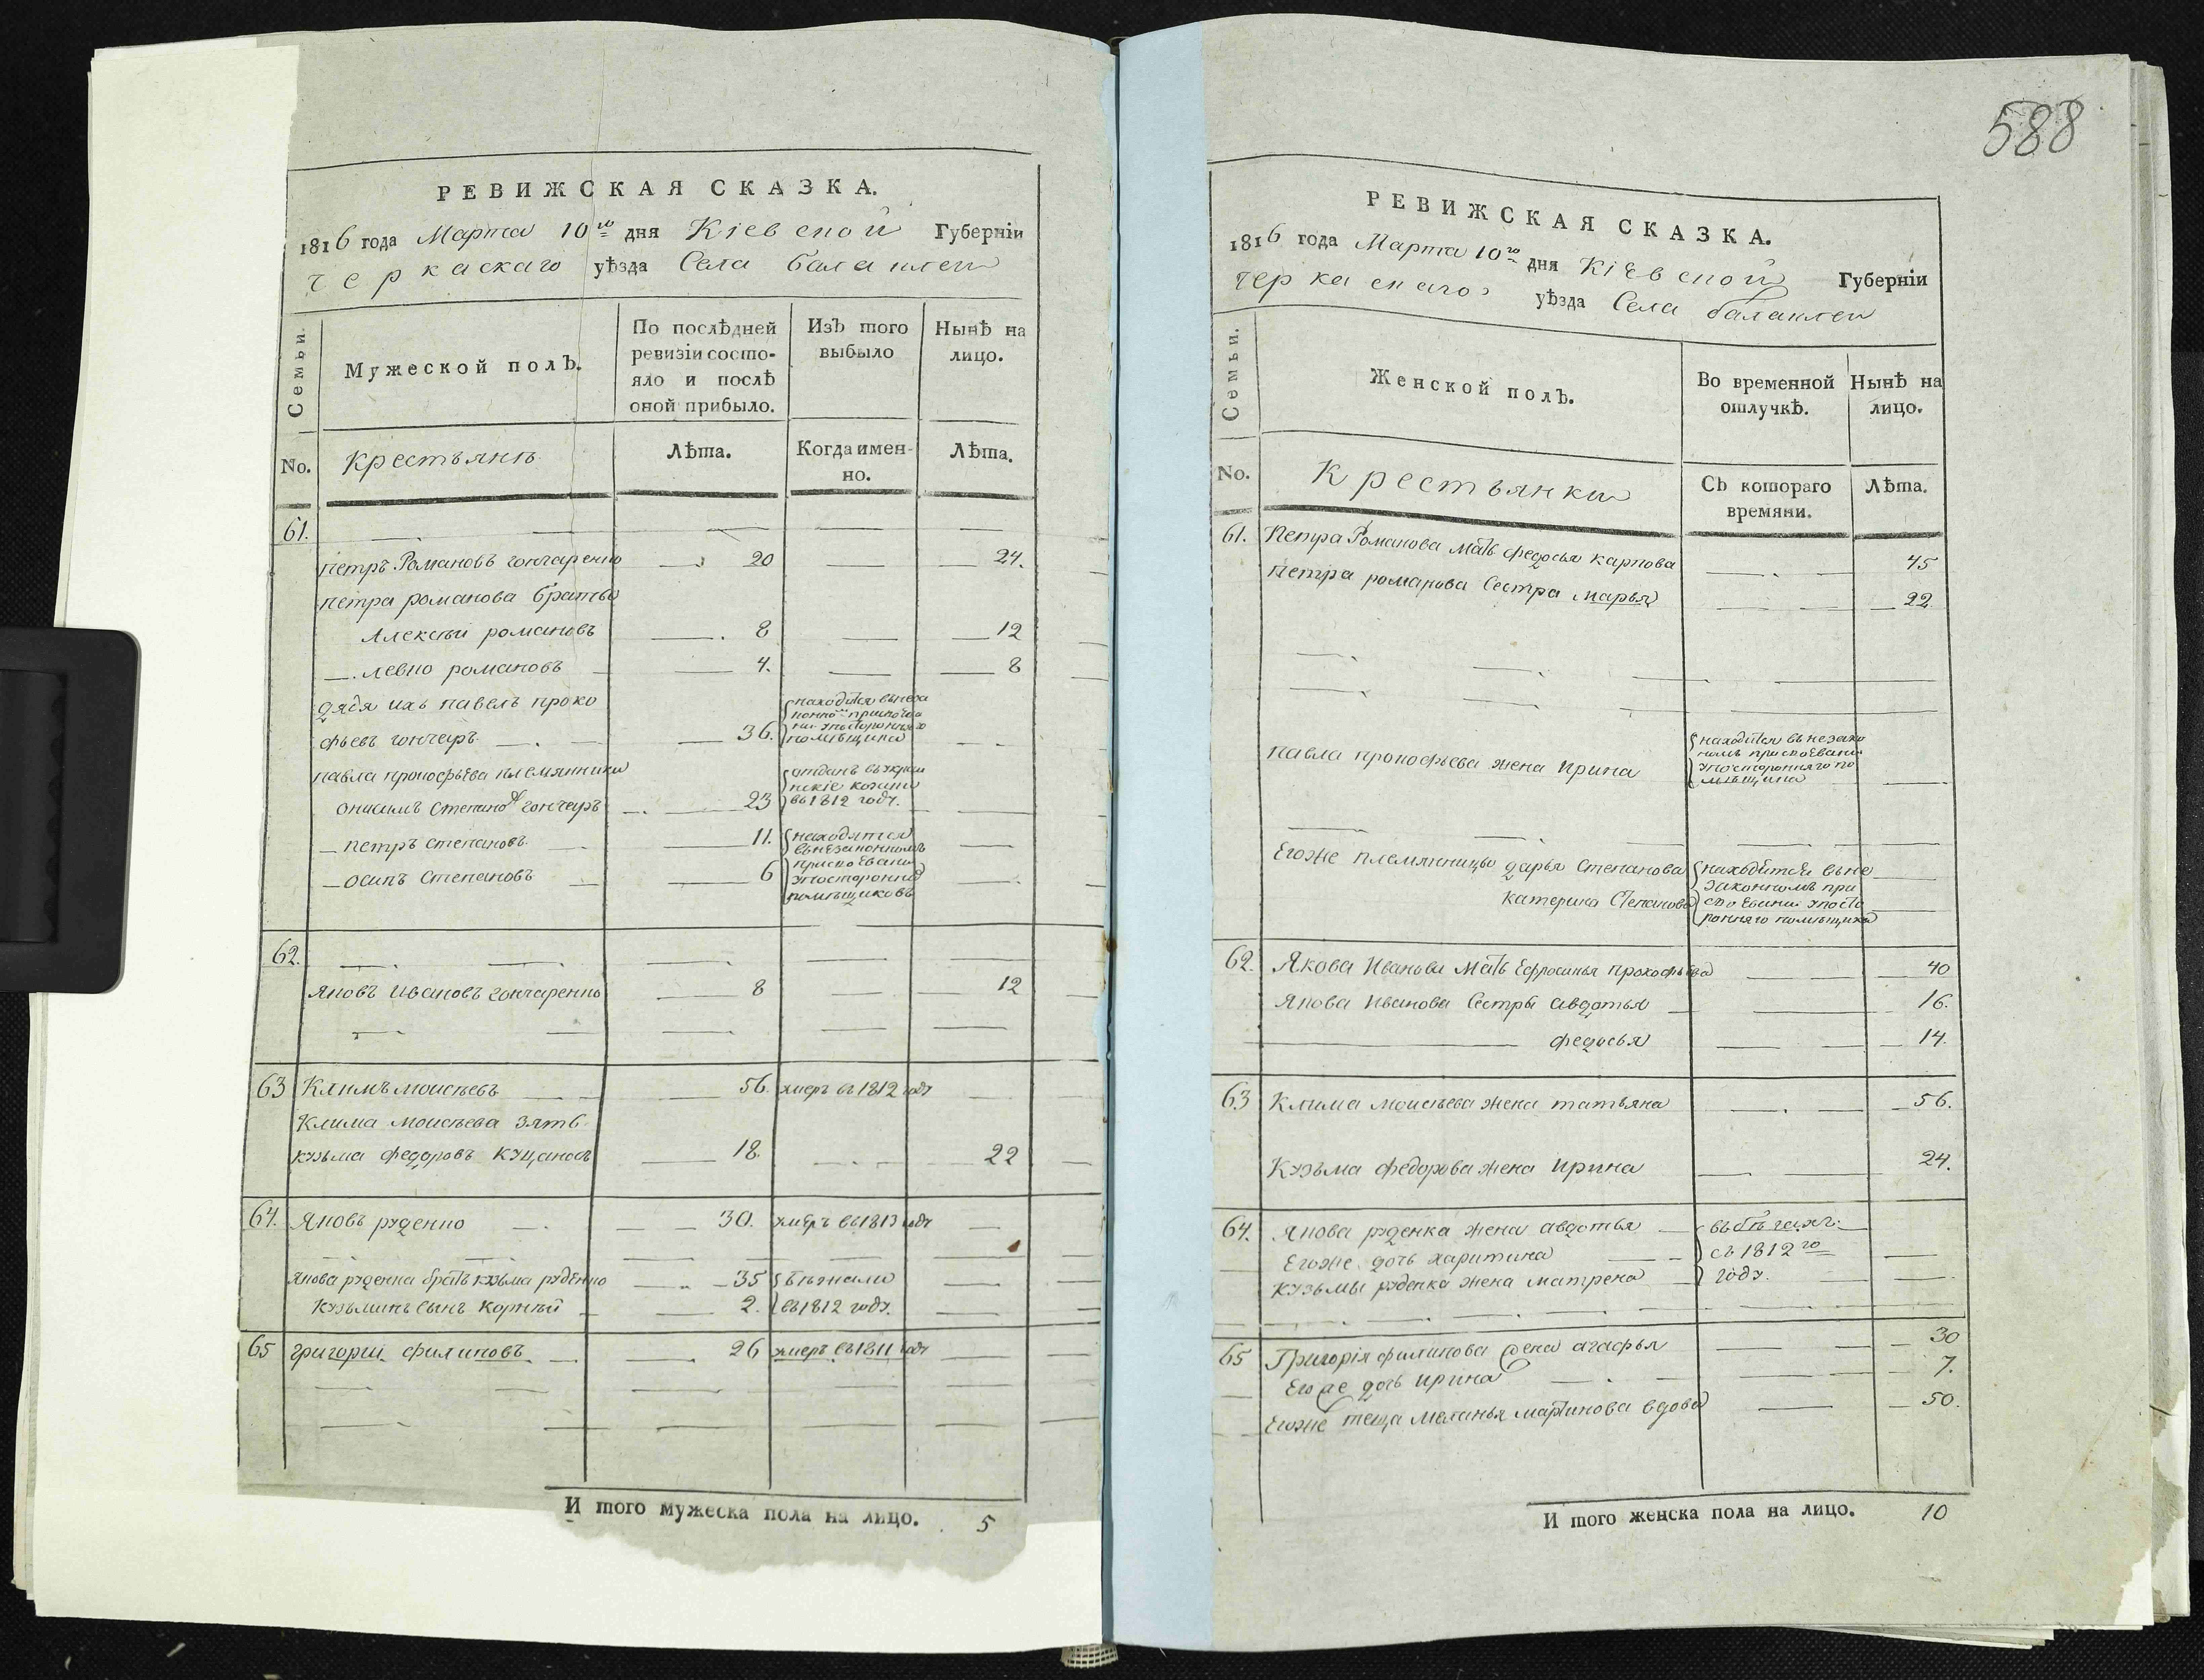 588
РЕВИЖСКАЯ СКАЗКА.
1816 года Марта 10го дня Кіевской Губерніи
Черкаскаго уѣзда Села балаклеи
Семьи.
Мужеской полъ.
По послѣдней ревизіи состояло и послѣ оной прибыло.
Изъ того выбыло
Нынѣ на лицо.
No.
Крестьянъ
Лѣта.
Когда именно.
Лѣта.
61.
петръ Романовъ гончаренко 20 24.
петра романова братья
Алексѣй романовъ 8 12
левко романовъ 4. 8
дядя ихъ павелъ проко
фьевъ гончаръ 36. находится в незаконномъ присвоении у постороннего помѣщика
павла прокофьева племянники
онисимъ Степановъ гончаръ 23 отданъ въ украинские козаки въ 1812 году.
петръ степановъ 11. находятся
осипъ Степановъ 6 въ незаконномъ присвоении у посторонних помѣщиковъ
62.
Яковъ Ивановъ гончаренко 8 12
63 Климъ моисѣевъ 56. умеръ въ 1812 году
Клима моисѣева зять
кузьма федоровъ 18. 22
64. Яковъ руденко 30. умеръ въ 1813 году
Якова руденка братъ кузьма руденко 35 бѣжали
Кузьминъ сынъ Корнѣй 2. въ 1812 году.
65 григорий филиповъ 26 умеръ въ 1811 году
И того мужеска пола на лицо. 5
РЕВИЖСКАЯ СКАЗКА.
1816 года Марта 10го дня Кіевской Губерніи
Черкаскаго уѣзда Села балаклеи
Семьи.
Женской полъ.
Во временной отлучкѣ.
Нынѣ на лицо.
No.
Крестьянки
Съ котораго времяни.
Лѣта.
61. Петра Романова мать федосья карпова 45
петра романова Сестра марья 22
павла прокофьева жена Ирина находится в незаконномъ присвоении у постороннего помѣщика
Егоже племянницы дарья Степанова находятся в не
катерина Степанова законномъ присвоении у постороннего помѣщика
62. Якова Иванова мать Ефросинья прокофьева 40
Якова Иванова Сестры авдотья 16.
федосья 14.
63 Клима моисѣева жена татьяна 56.
Кузьма федорова жена Ирина 24.
64. Якова руденка жена авдотья въ бѣгахъ
Егоже дочь харитина съ 1812го
кузьмы руденка жена матрена году.
65 Григорія филипова жена агафья 30
Егоже дочь ирина 7.
Егоже теща меланья мартинова вдова 50.
И того женска пола на лицо. 10